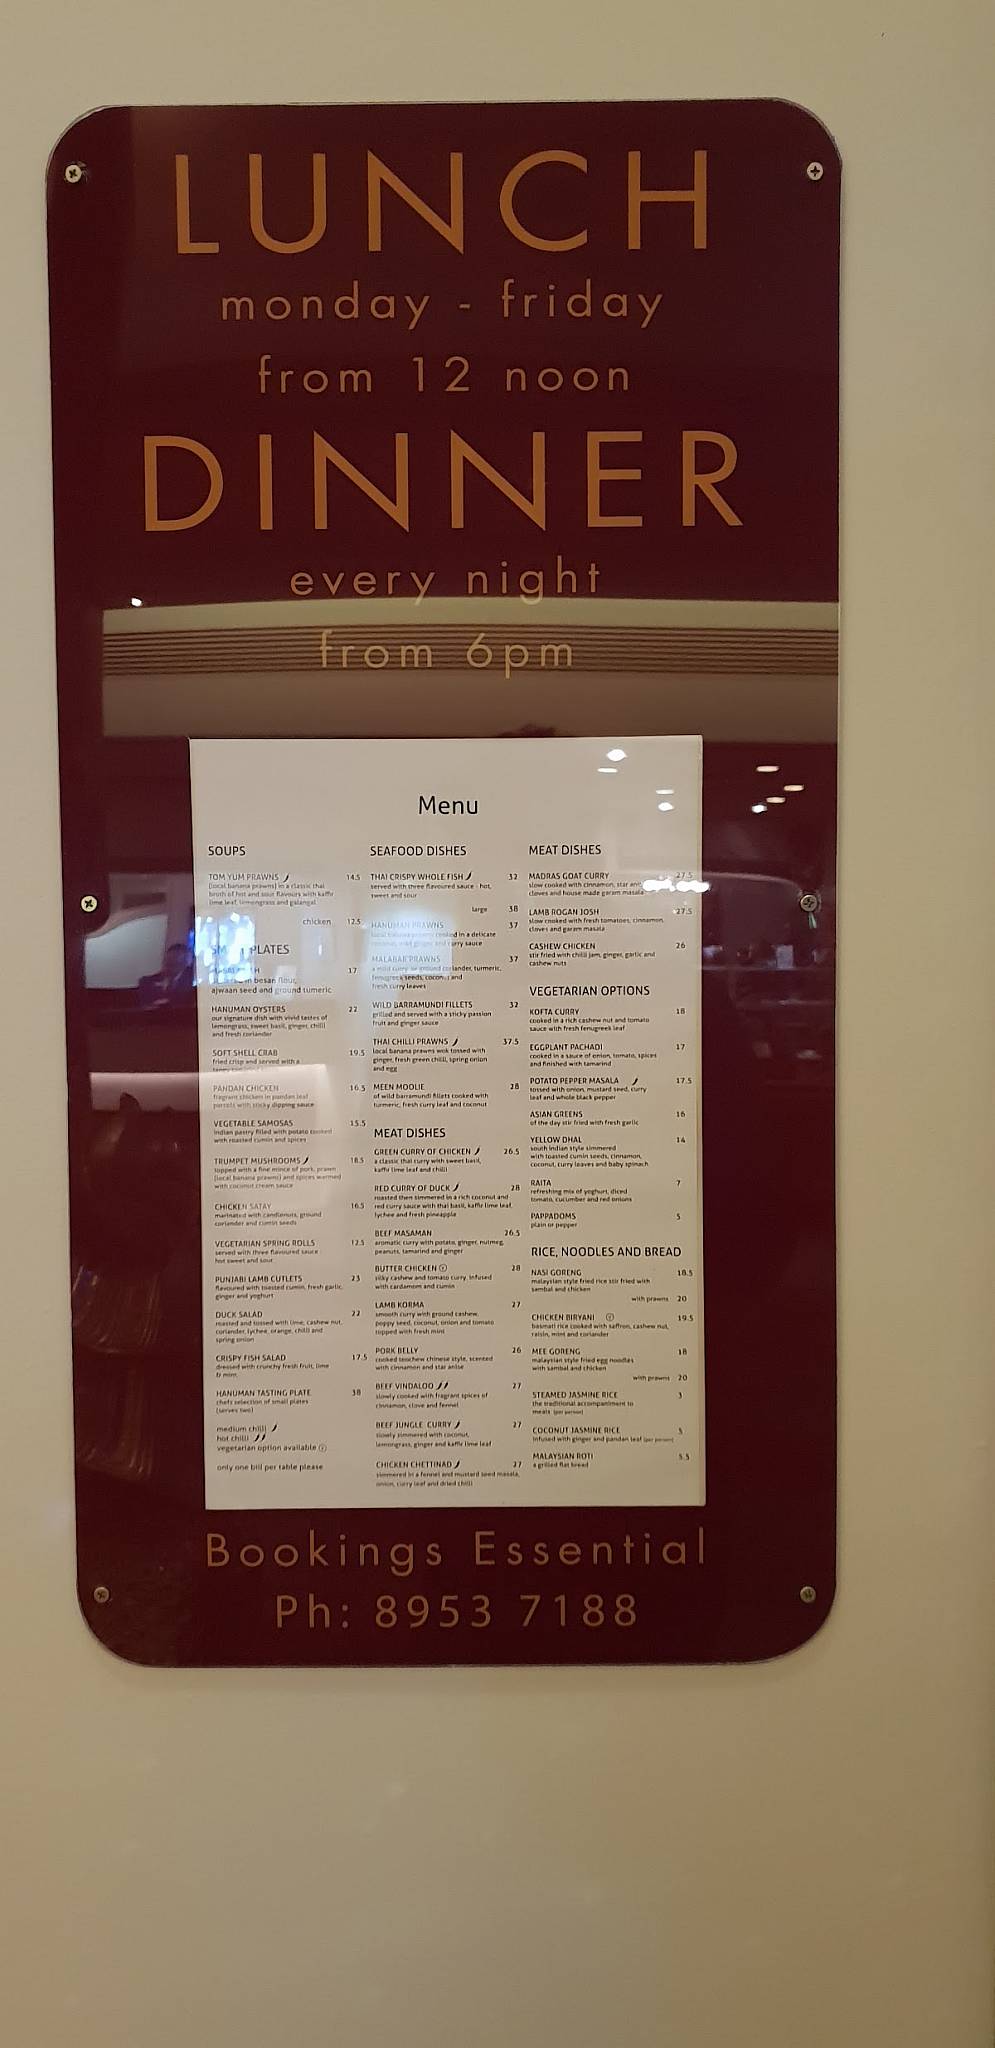 LUNCH
monday - friday
from 12 noon
DINNER
every night
from 6pm
Menu
SOUPS
TOM YUM PRAWNS 14.5
(local banana prawns) in a classic thai
broth of hot and sour flavours with kaffir
lime leaf, lemongrass and galangal
chicken 12.5
PLATES
17
in besan flour,
ajwaan seed and ground tumeric
HANUMAN OYSTERS 22
our signature dish with vivid tastes of
lemongrass, sweet basil, ginger, chilli
and fresh coriander
SOFT SHELL CRAB 19.5
fried crisp and served with a
PANDAN CHICKEN 16.5
fragrant chicken in pandan leaf
parcels with sticky dipping sauce
VEGETABLE SAMOSAS 15.5
indian pastry filled with potato cooked
with roasted cumin and spices
TRUMPET MUSHROOMS 18.5
topped with a fine mince of pork, prawn
(local banana prawns) and spices warmed
with coconut cream sauce
CHICKEN SATAY 16.5
marinated with candlenuts, ground
coriander and cumin seeds
VEGETARIAN SPRING ROLLS 12.5
served with three flavoured sauce -
hot sweet and sour
PUNJABI LAMB CUTLETS 23
flavoured with toasted cumin, fresh garlic,
ginger and yoghurt
DUCK SALAD 22
roasted and tossed with lime, cashew nut,
coriander, lychee, orange, chilli and
spring onion
CRISPY FISH SALAD 17.5
dressed with crunchy fresh fruit, lime
& mint
HANUMAN TASTING PLATE 38
chefs selection of small plates
(serves two)
medium chilli
hot chilli
vegetarian option available Ⓥ
only one bill per table please
SEAFOOD DISHES
THAI CRISPY WHOLE FISH 32
served with three flavoured sauce - hot,
sweet and sour
large 38
HANUMAN PRAWNS 37
local banana prawns cooked in a delicate
coconut, wild ginger and curry sauce
MALABAR PRAWNS 37
a mild curry of ground coriander, turmeric,
fenugreek seeds, coconut and
fresh curry leaves
WILD BARRAMUNDI FILLETS 32
grilled and served with a sticky passion
fruit and ginger sauce
THAI CHILLI PRAWNS 37.5
local banana prawns wok tossed with
ginger, fresh green chilli, spring onion
and egg
MEEN MOOLIE 28
of wild barramundi fillets cooked with
turmeric, fresh curry leaf and coconut
MEAT DISHES
GREEN CURRY OF CHICKEN 26.5
a classic thai curry with sweet basil,
kaffir lime leaf and chilli
RED CURRY OF DUCK 28
roasted then simmered in a rich coconut and
red curry sauce with thai basil, kaffir lime leaf,
lychee and fresh pineapple
BEEF MASAMAN 26.5
aromatic curry with potato, ginger, nutmeg,
peanuts, tamarind and ginger
BUTTER CHICKEN Ⓥ 28
silky cashew and tomato curry, infused
with cardamom and cumin
LAMB KORMA 27
smooth curry with ground cashew,
poppy seed, coconut, onion and tomato
topped with fresh mint
PORK BELLY 26
cooked teochew chinese style, scented
with cinnamon and star anise
BEEF VINDALOO 27
slowly cooked with fragrant spices of
cinnamon, clove and fennel
BEEF JUNGLE CURRY 27
slowly simmered with coconut,
lemongrass, ginger and kaffir lime leaf
CHICKEN CHETTINAD 27
simmered in a fennel and mustard seed masala,
onion, curry leaf and dried chilli
MEAT DISHES
MADRAS GOAT CURRY 27.5
slow cooked with cinnamon, star
cloves and house made garam masala
LAMB ROGAN JOSH 27.5
slow cooked with fresh tomatoes, cinnamon,
cloves and garam masala
CASHEW CHICKEN 26
stir fried with chilli jam, ginger, garlic and
cashew nuts
VEGETARIAN OPTIONS
KOFTA CURRY 18
cooked in a rich cashew nut and tomato
sauce with fresh fenugreek leaf
EGGPLANT PACHADI 17
cooked in a sauce of onion, tomato, spices
and finished with tamarind
POTATO PEPPER MASALA 17.5
tossed with onion, mustard seed, curry
leaf and whole black pepper
ASIAN GREENS 16
of the day stir fried with fresh garlic
YELLOW DHAL 14
south indian style simmered
with toasted cumin seeds, cinnamon,
coconut, curry leaves and baby spinach
RAITA 7
refreshing mix of yoghurt, diced
tomato, cucumber and red onions
PAPPADOMS 5
plain or pepper
RICE, NOODLES AND BREAD
NASI GORENG 18.5
malaysian style fried rice stir fried with
sambal and chicken
with prawns 20
CHICKEN BIRYANI Ⓥ 19.5
basmati rice cooked with saffron, cashew nut,
raisin, mint and coriander
MEE GORENG 18
malaysian style fried egg noodles
with sambal and chicken
with prawns 20
STEAMED JASMINE RICE 3
the traditional accompaniment to
meals (per person)
COCONUT JASMINE RICE 5
infused with ginger and pandan leaf (per person)
MALAYSIAN ROTI 5.5
a grilled flat bread
Bookings Essential
Ph: 8953 7188